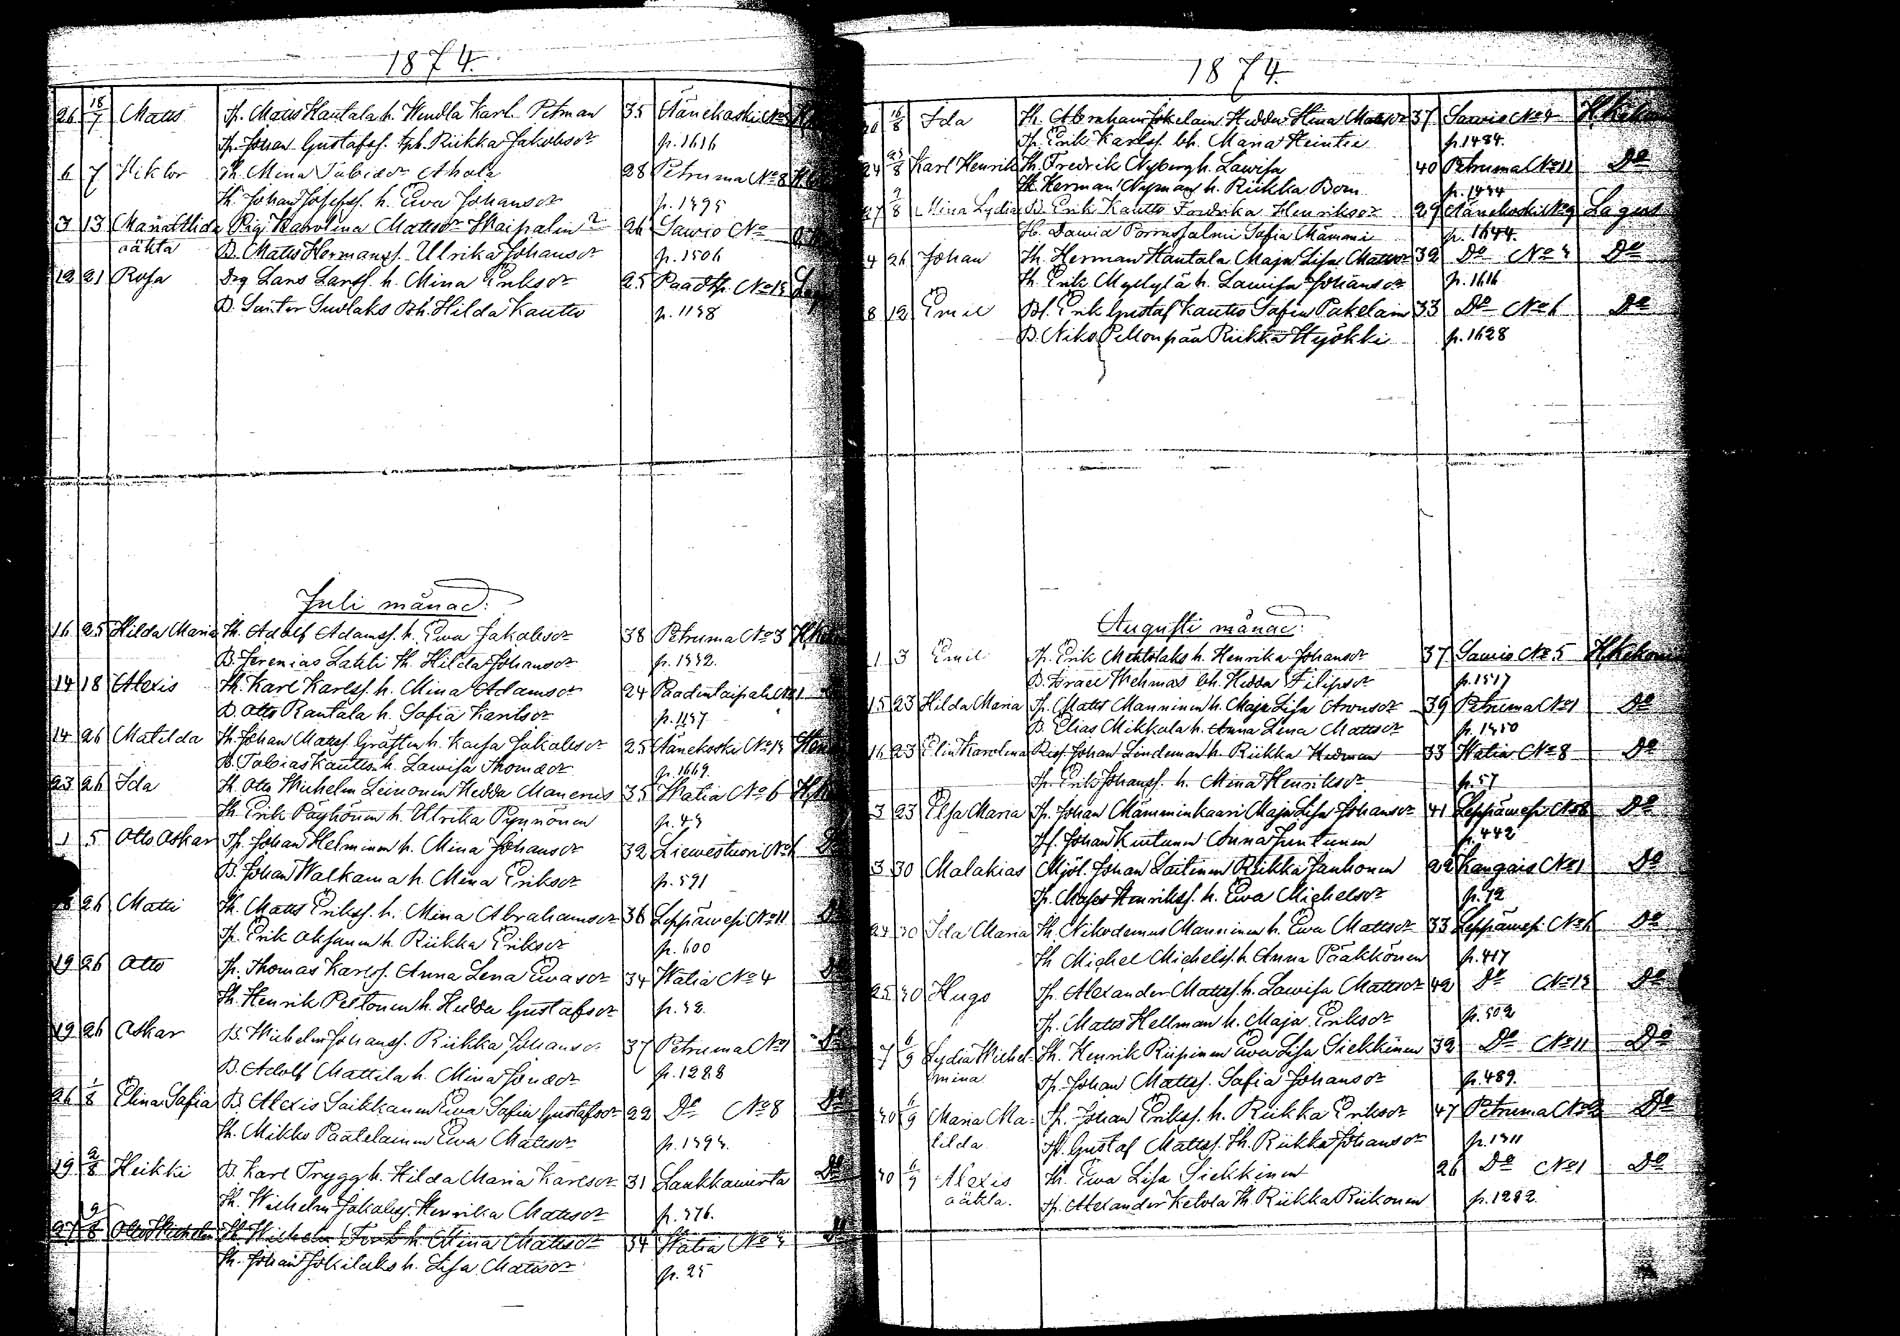 1874.
26 18/7 Matts Tp. Matts Hautala h. Wendla Karl. Petman 35 Hänekoski No
Tp. Johan Gustafss. Riikka Jakobsdr p. 1616
6 7 Wiktor Th. Mina Tobiasdr Ahola 28 Petruma No 8
Th. Johan Josefss. h. Ewa Johansdr p. 1395
3 13 Maria Mtilda Pig. Karolina Mattsdr 26 Sawio No
oäkta B. Matts Hermanss. Ulrika Johansdr p. 1506
12 21 Rosa Drg Lars Larss. h. Mina Eriksdr 25 Paadtp. No 15
B. Hilda Kautto p. 1138
Juli månad:
16 25 Hilda Maria Th. Adolf Adamss. h. Ewa Jakobsdr 38 Petruma No 3
B. Jeremias Lahti Th. Hilda Johansdr p. 1332.
14 18 Alexis Th. Karl Karlss. h. Mina Adamsdr 24 Paadentaipale No 1
B. Otto Rantala h. Safia Karlsdr p. 1137
14 26 Matilda Th. Johan Matss. Grästen h. Kaisa Jakobsdr 25 Hänekoski No 13
B. Tobias Kautto h. Lawisa Thomasdr p. 1669.
23 26 Ida Th. Otto Wilhelm Leinonen Hedda Manenius 35 Watia No 6
Th. Erik Päyhönen h. Ulrika Pynnönen p. 43
1 5 Otto Oskar Tp. Johan Helminen h. Mina Johansdr 32 Liewestuori No 6
B. Johan Walkama h. Mina Eriksdr p. 591
26 Matti Th. Matts Erikss. h. Mina Abrahamsdr 36 Leppäwesi No 11 Do
Tp. Erik Oksanen h. Riikka Eriksdr p. 600
19 26 Otto Tp. Thomas Karlss. Anna Lena Ewasdr 34 Watia No 4 Do
Th. Henrik Peltonen h. Hedda Gustafsdr p. 32.
19 26 Oskar B. Wilhelm Johanss. Riikka Johansdr 37 Petruma No 1 Do
B. Adolf Mattila h. Mina Jonasdr p. 1288
26 1/8 Elina Safia B. Alexis Saikkanen Ewa Safia Gustafsdr 22 Do No 8 Do
Th. Mikko Paatelainen Ewa Mattsdr p. 1393.
19 2/8 Heikki B. Karl Trygg h. Hilda Maria Karlsdr 31 Laukkawirta Do
Th. Wilhelm Jakobss. Henrika Mattsdr p. 376.
27 9/8 Otto Wilhelm Th. Wilhelm h. Mina Mattsdr 34 Watia No 3 Do
Th. Johan Jokilaks h. Lisa Mattsdr p. 25
1874.
16/8 Ida Th. Abraham Jokelain Hedda Stina Matsdr 37 Sawio No 4 H. Kekoni
Tp. Erik Karlss. bh. Maria Heintie p. 1484.
24 23/8 Karl Henrik Th. Fredrik Nyberg h. Lawisa 40 Petruma No 11 Do
Th. Herman Nyman h. Riikka Bom p. 1434
27 2/8 Mina Lydia B. Erik Kautto Fredrika Henriksdr 29 Hänekoski No 9 Lagus
Th. Dawid Porrassalmi Safia Mämmi p. 1644.
4 26 Johan Th. Herman Hautala Maja Lisa Mattsdr 32 Do No 3 Do
Th. Erik Myllylä h. Lawisa Johansdr p. 1616
8 12 Emil Bf. Erik Gustaf Kautto Safia Pakelain 33 Do No 6 Do
B. Niko Pellonpää Riikka Hyökki p. 1628
Augusti månad:
1 3 Emil Tp. Erik Mehtolaks h. Henrika Johansdr 37 Sawio No 5 H. Kekoni
B. Israel Wehmas bh. Hedda Filipsdr p. 1517
15 23 Hilda Maria Tp. Matts Manninen h. Maja Lisa Aronsdr 39 Petruma No 1 Do
B. Elias Mikkola h. Anna Lena Mattsdr p. 1350
16 23 Elin Karolina Johan Lindeman h. Riikka Hedman 33 Watia No 8 Do
Tp. Erik Johanss. h. Mina Henriksdr p. 57
3 23 Elsa Maria Tp. Johan Mämminkaari Maja Lisa Johansdr 41 Leppäwesi No 8 Do
Johan Kuitunen Anna Juntunen p. 442
3 30 Malakias Mjöl. Johan Laitinen Riikka Janhonen 22 Kangais No 1 Do
Tp. Moses Henrikss. h. Ewa Michelsdr p. 12
24 30 Ida Maria Th. Nikodemus Manninen h. Ewa Mattsdr 33 Leppäwesi No 6 Do
Th. Michel Michelss. h. Anna Pääkkönen p. 417
25 30 Hugo Tp. Alexander Mattss. h. Lawisa Mattsdr 42 Do No 13 Do
Tp. Matts Hellman h. Maja Eriksdr p. 502
7 6/9 Lydia Wilhel- Th. Henrik Riipinen Ewa Lisa Siekkinen 32 Do No 11 Do
mina Tp. Johan Mattss. Safia Johansdr p. 489.
30 6/9 Maria Ma- Tp. Johan Erikss. h. Riikka Eriksdr 47 Petruma No 2 Do
tilda Tp. Gustaf Mattss. Th. Riikka Johansdr p. 1311
30 6/9 Alexis Th. Ewa Lisa Siekkinen 26 Do No 1 Do
oäkta. Tp. Alexander Ketola Th. Riikka Riikonen p. 1282.